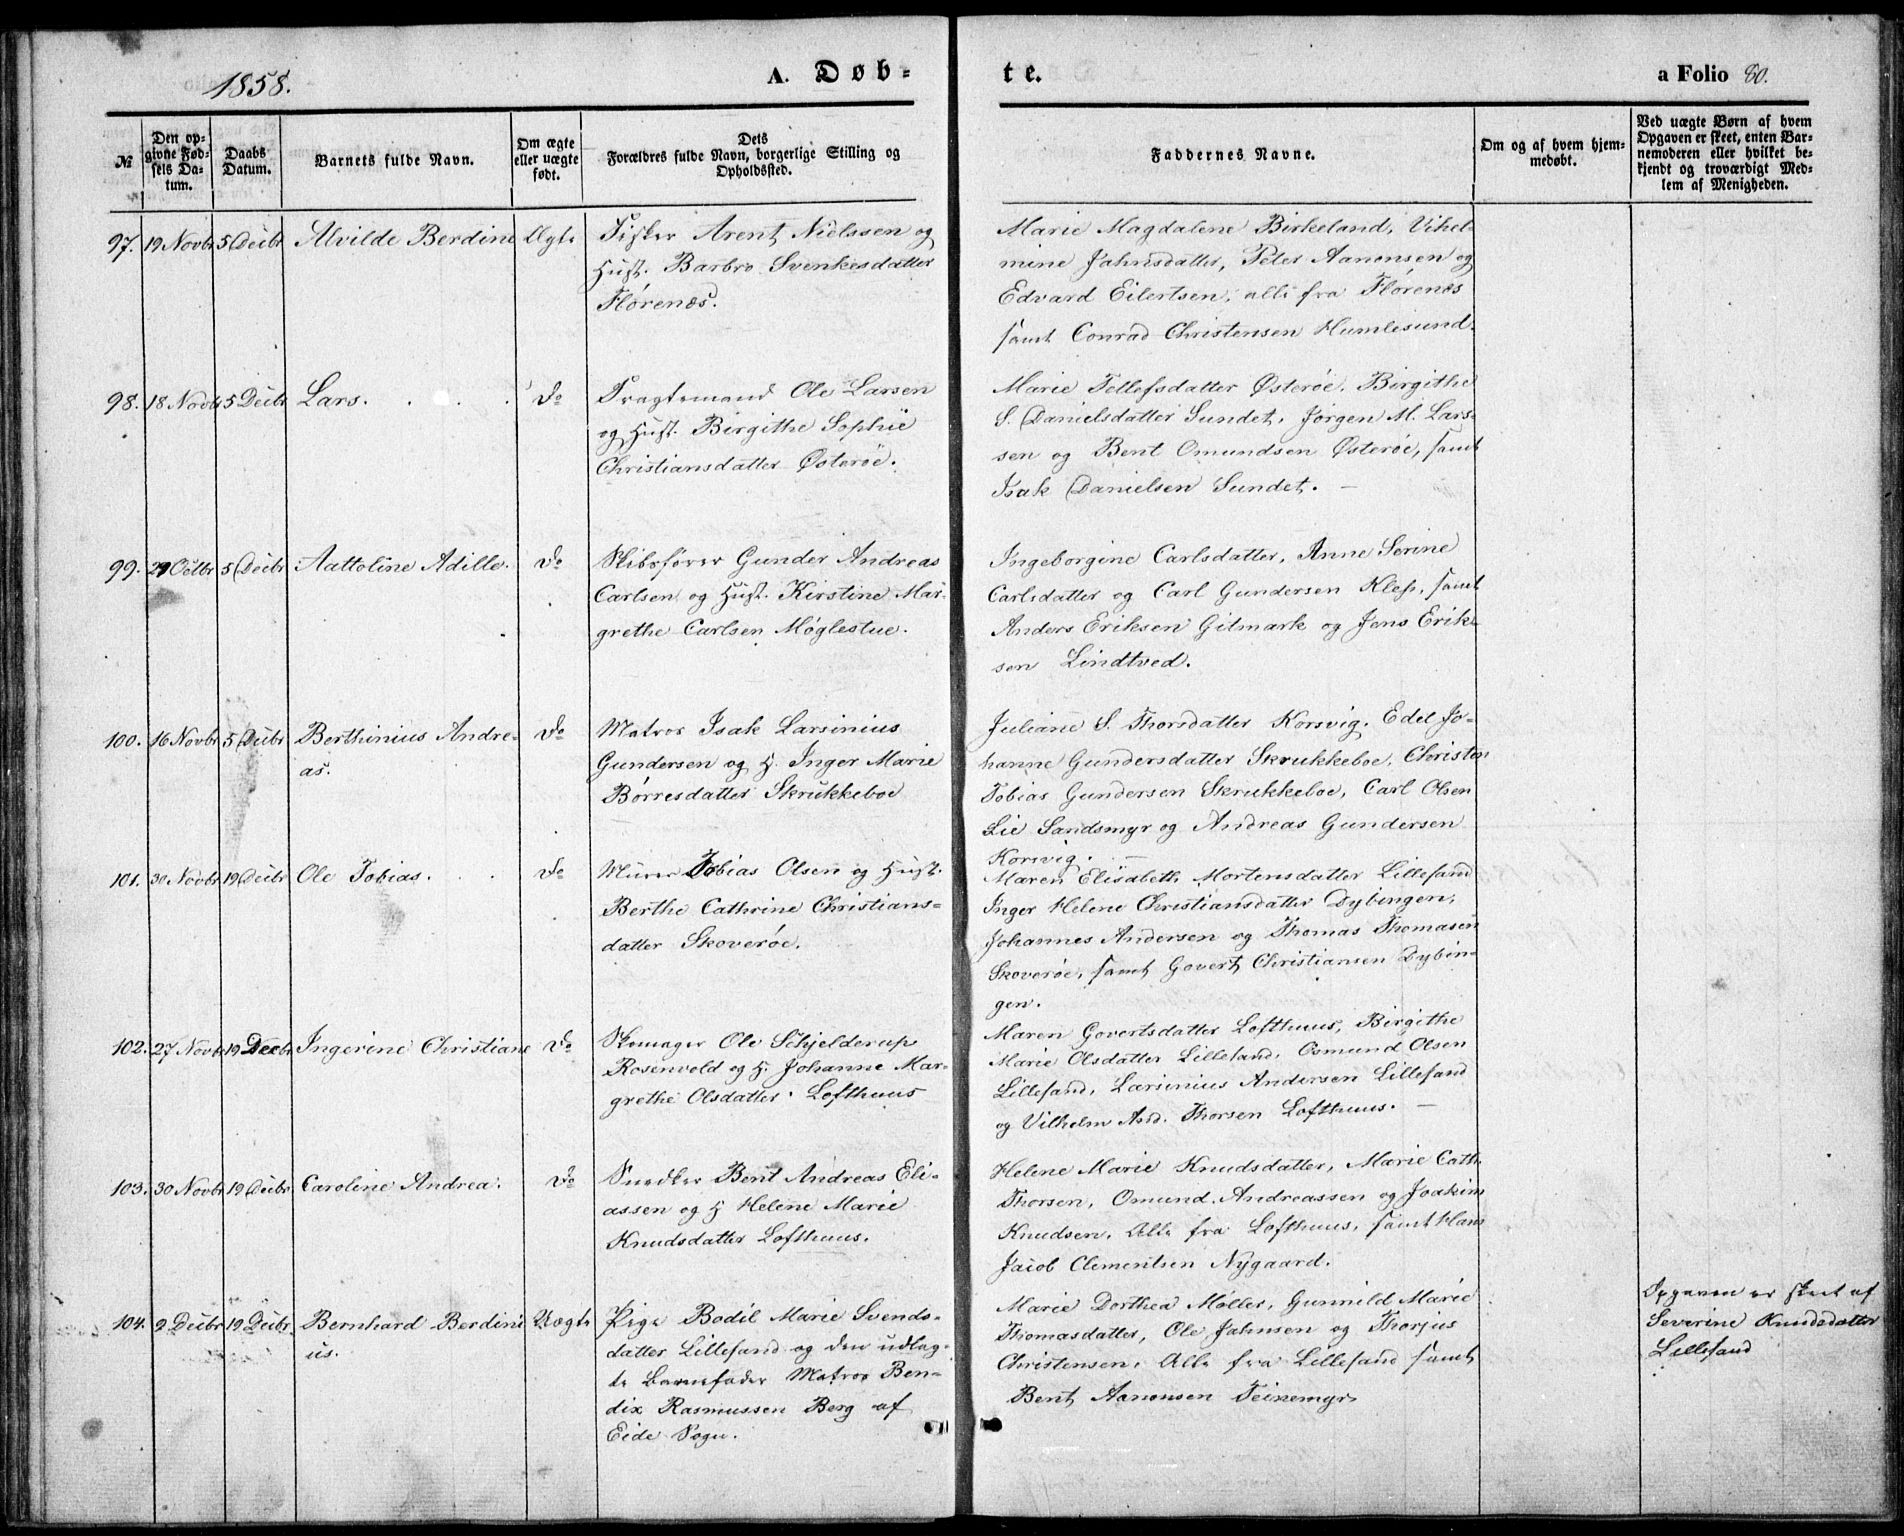 1858.
A. Døb-
te.
a Folio 80.
№
Den op-
givne Fød-
sels Da-
tum.
Daabs
Datum.
Barnets fulde Navn.
Om ægte
eller uægte
født.
Dets
Forældres fulde Navn, borgerlige Stilling og
Opholdssted.
Faddernes Navne.
Om og af hvem hjem-
medøbt.
Ved uægte Børn af hvem
Opgaven er skeet, enten Bar-
nemoderen eller hvilket be-
kjendt og troværdigt Med-
lem af Menigheden.
97. 19 Novbr 5 Decbr Alvilde Berdine Ægte
Fisker Arent Nielssen og
Hust. Barbro Svenkesdatter
Flørenæs.
Marie Magdalene Birkeland, Vihel-
mine Jahnsdatter, Peter Aanonsen og
Edvard Eilertsen, alle fra Flørenæs
samt Conrad Christensen Humlesund.
98. 18 Novbr 5 Decbr Lars. do
Fragtemand Ole Larsen
og Hust. Birgithe Sophie
Christiansdatter Østerøe.
Marie Tellefsdatter Østerøe, Birgithe
S. Danielsdatter Sundet, Jørgen M. Lars-
sen og Bent Omundsen Østerøe, samt
Isak Danielsen Sundet. —
99. 29 Octbr 5 Decbr Aattoline Adille. do
Skibsfører Gunder Andreas
Carlsen og Hust. Kirstine Mar-
grethe Carlsen Møglestue.
Ingeborgine Carlsdatter, Anne Serine
Carlsdatter og Carl Gundersen Klep, samt
Anders Eriksen Gitmark og Jens Erik-
sen Lindtved.
100. 16 Novbr 5 Decbr Berthinius Andre-
as. do
Matros Isak Larsinius
Gundersen og H. Inger Marie
Børresdatter Skrukkeboe
Juliane S. Thorsdatter Korsvig, Edel Jo-
hanne Gundersdatter Skrukkeboe, Christen
Tobias Gundersen Skrukkeboe, Carl Olsen
Lie Sandsmyr og Andreas Gundersen
Korsvig. —
101. 30 Novbr 19 Decbr Ole Tobias. do
Murer Tobias Olsen og Hust.
Berthe Cathrine Christians-
datter Skoverøe.
Maren Elisabeth Mortensdatter Lillesand
Inger Helene Christiansdatter Dybingen,
Johannes Andersen og Thomas Thomasen
Skoverøe, samt Govert Christiansen Dybin-
gen.
102. 27 Novbr 19 Decbr Ingerine Christiane do
Skomager Ole Schjelderup
Rosenvold og H. Johanne Mar-
grethe Olsdatter Lofthuus
Maren Govertsdatter Lofthuus, Birgithe
Marie Olsdatter Lillesand, Osmund Olsen
Lillesand, Larsinius Andersen Lillesand
og Vilhelm And. Thorsen Lofthuus. —
103. 30 Novbr 19 Decbr Caroline Andrea. do
Snedker Bent Andreas Eli-
assen og H Helene Marie
Knudsdatter Lofthuus.
Helene Marie Knudsdatter, Marie Cath.
Thorsen, Omund Andreassen og Joakim
Knudsen, Alle fra Lofthuus, samt Hans
Jacob Clementsen Nygaard.
104. 9 Decbr 19 Decbr Bernhard Berdini-
us. Uægte
Pige Bodil Marie Svends-
datter Lillesand og den udlag-
te Barnefader Matros Ben-
dix Rasmussen Berg af
Eide Sogn.
Marie Dorthea Møller, Gunnild Marie
Thomasdatter, Ole Jahnsen og Thorjus
Christensen, Alle fra Lillesand samt
Bent Aanonsen Teinemyr
Opgaven er skeet af
Severine Knudsdatter
Lillesand